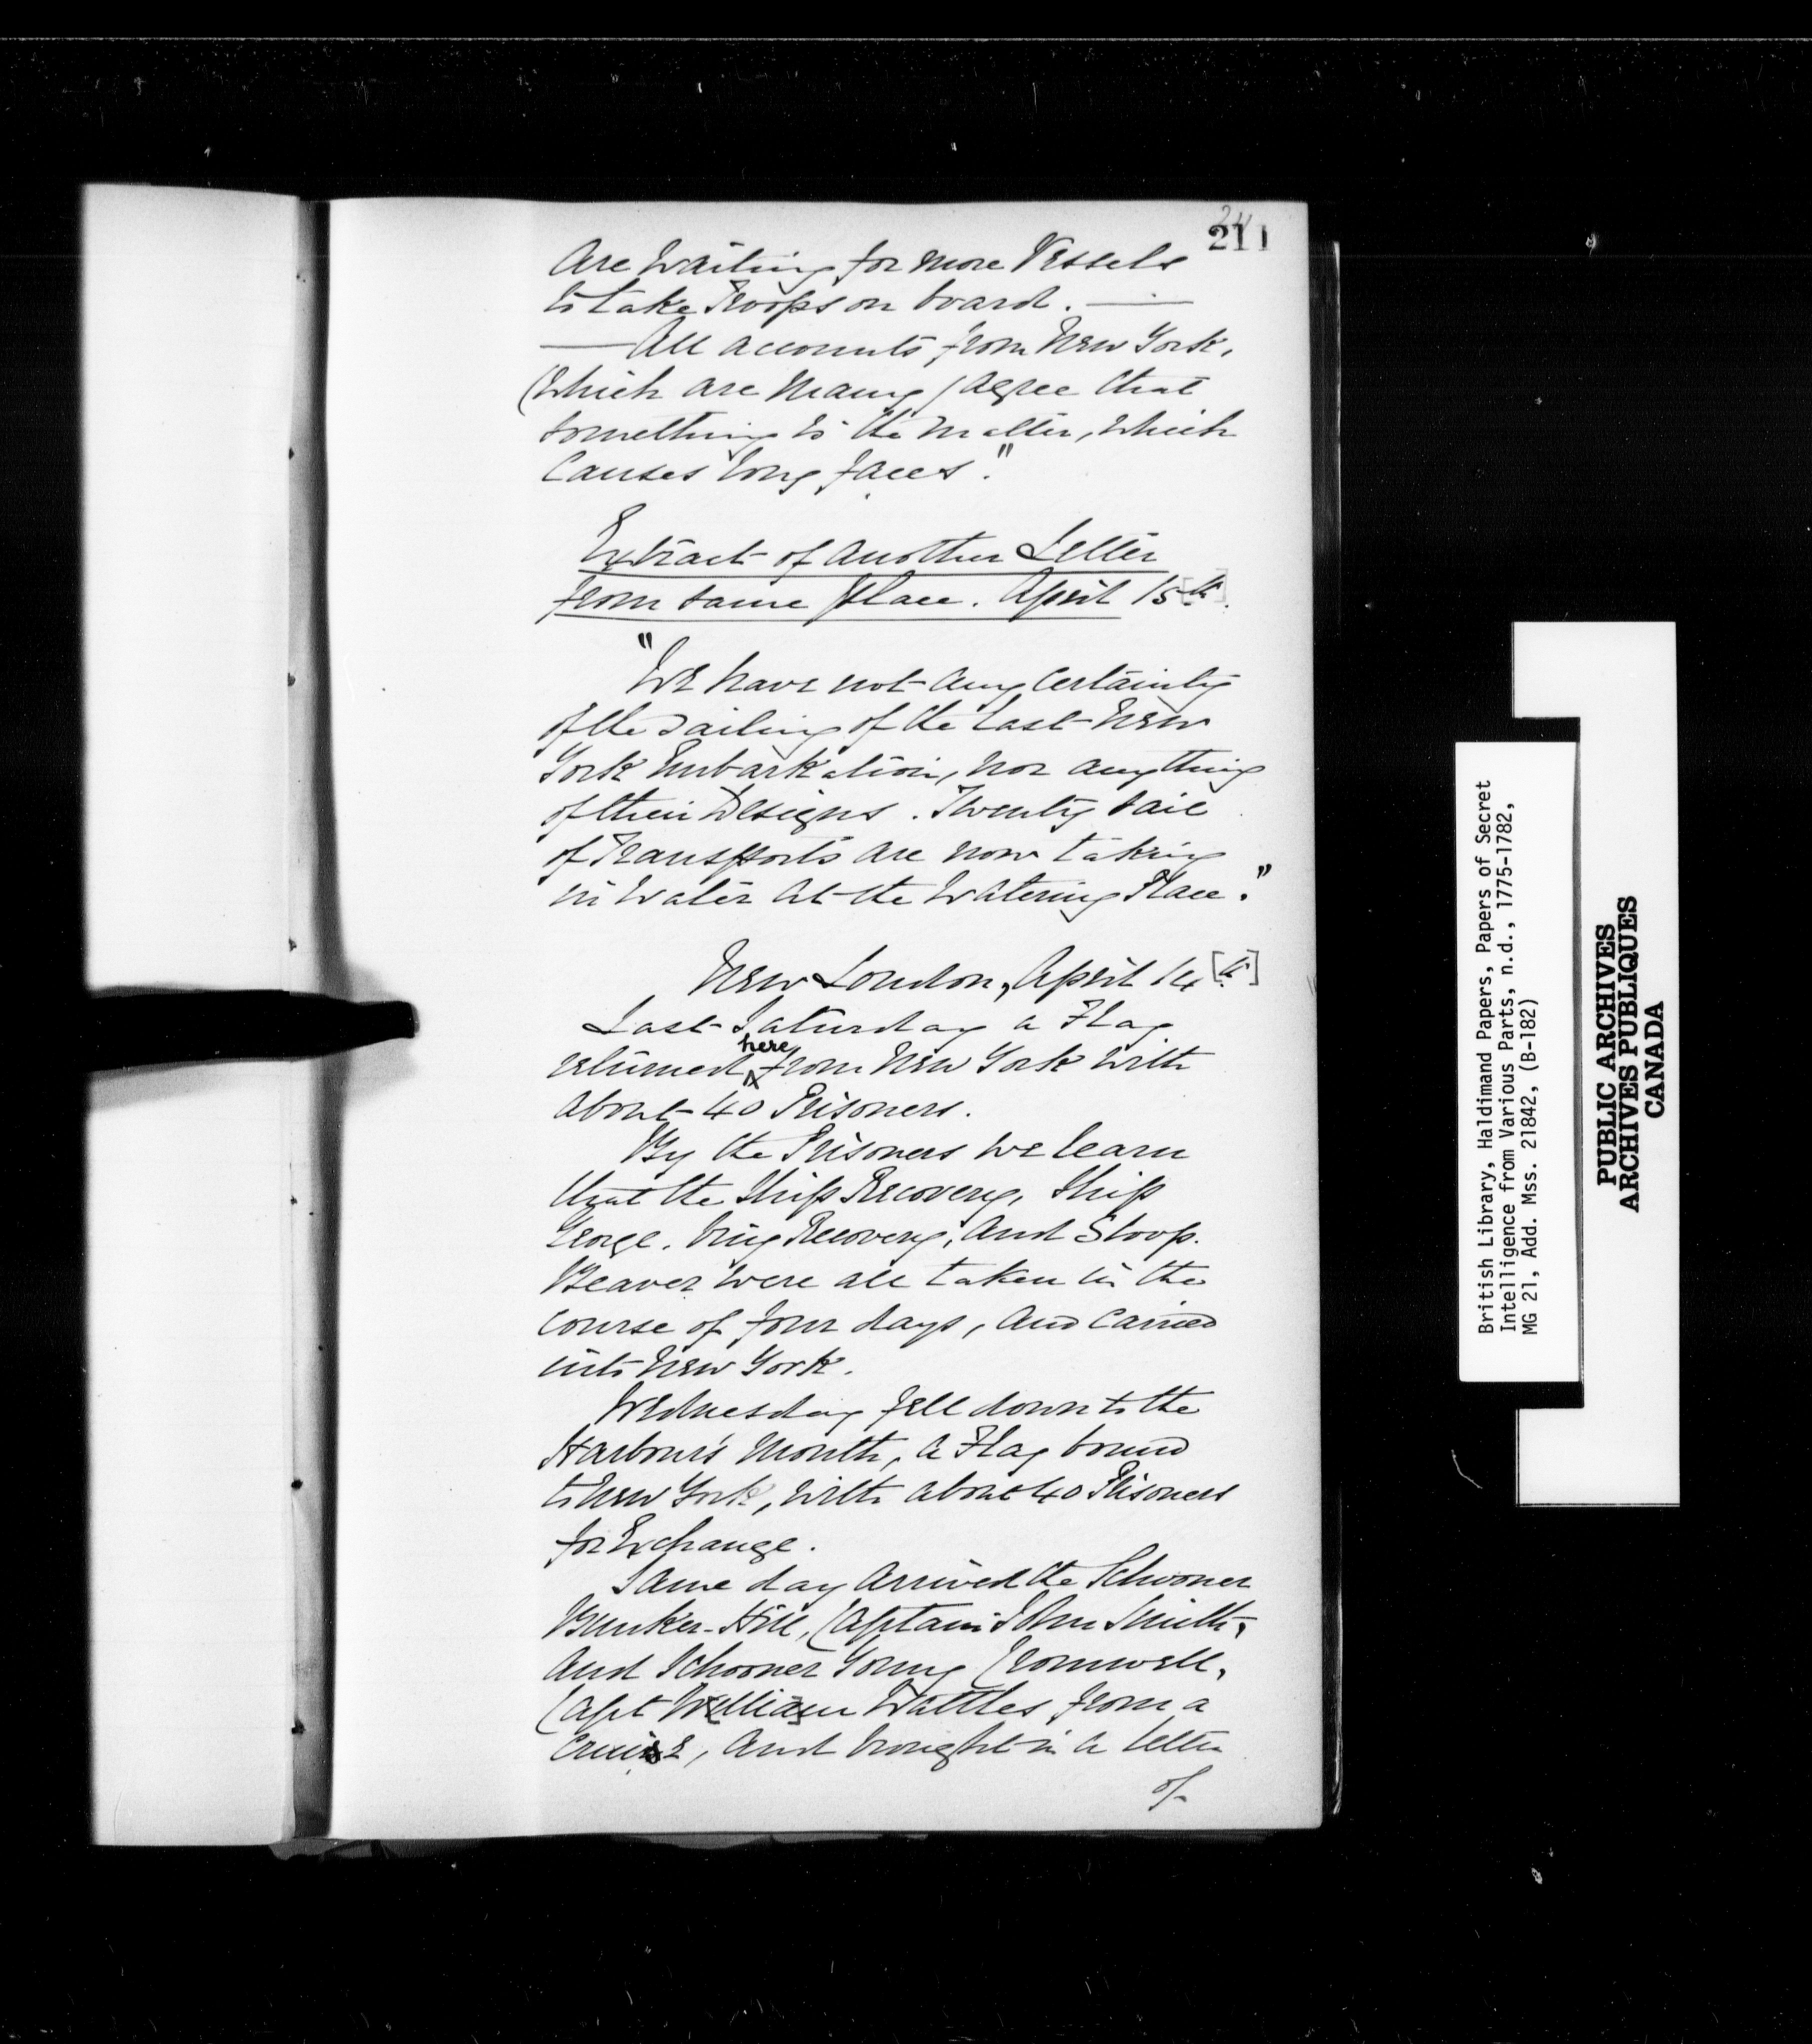 211
are waiting for more Vessels
to take Troops on board. —
— All accounts from New York,
(which are many) agree that
something is the matter, which
causes long faces."
Extract of another Letter
from same place. April 15[th].
"We have not any certainty
of the sailing of the last New
York Embarkation, nor anything
of their Designs. Twenty sail
of Transports are now taking
in Water at the Watering Place."
New London, April 14[th]
Last Saturday a Flag
returned here from New York with
about 40 Prisoners.
By the Prisoners we learn
that the Ship Recovery, Ship
George, brig Recovery, and Sloop
Beaver were all taken in the
course of four days, and carried
into New York.
Wednesday fell down to the
Harbour's Mouth, a Flag bound
to New York, with about 40 Prisoners
for Exchange.
Same day arrived the Schooner
Bunker-Hill, Captain John Smith,
and Schooner Young Cromwell,
Capt W[illia]m Wattles from a
cruise, and brought in a letter
of
British Library, Haldimand Papers, Papers of Secret
Intelligence from Various Parts, n.d., 1775-1782,
MG 21, Add. Mss. 21842, (B-182)
PUBLIC ARCHIVES
ARCHIVES PUBLIQUES
CANADA